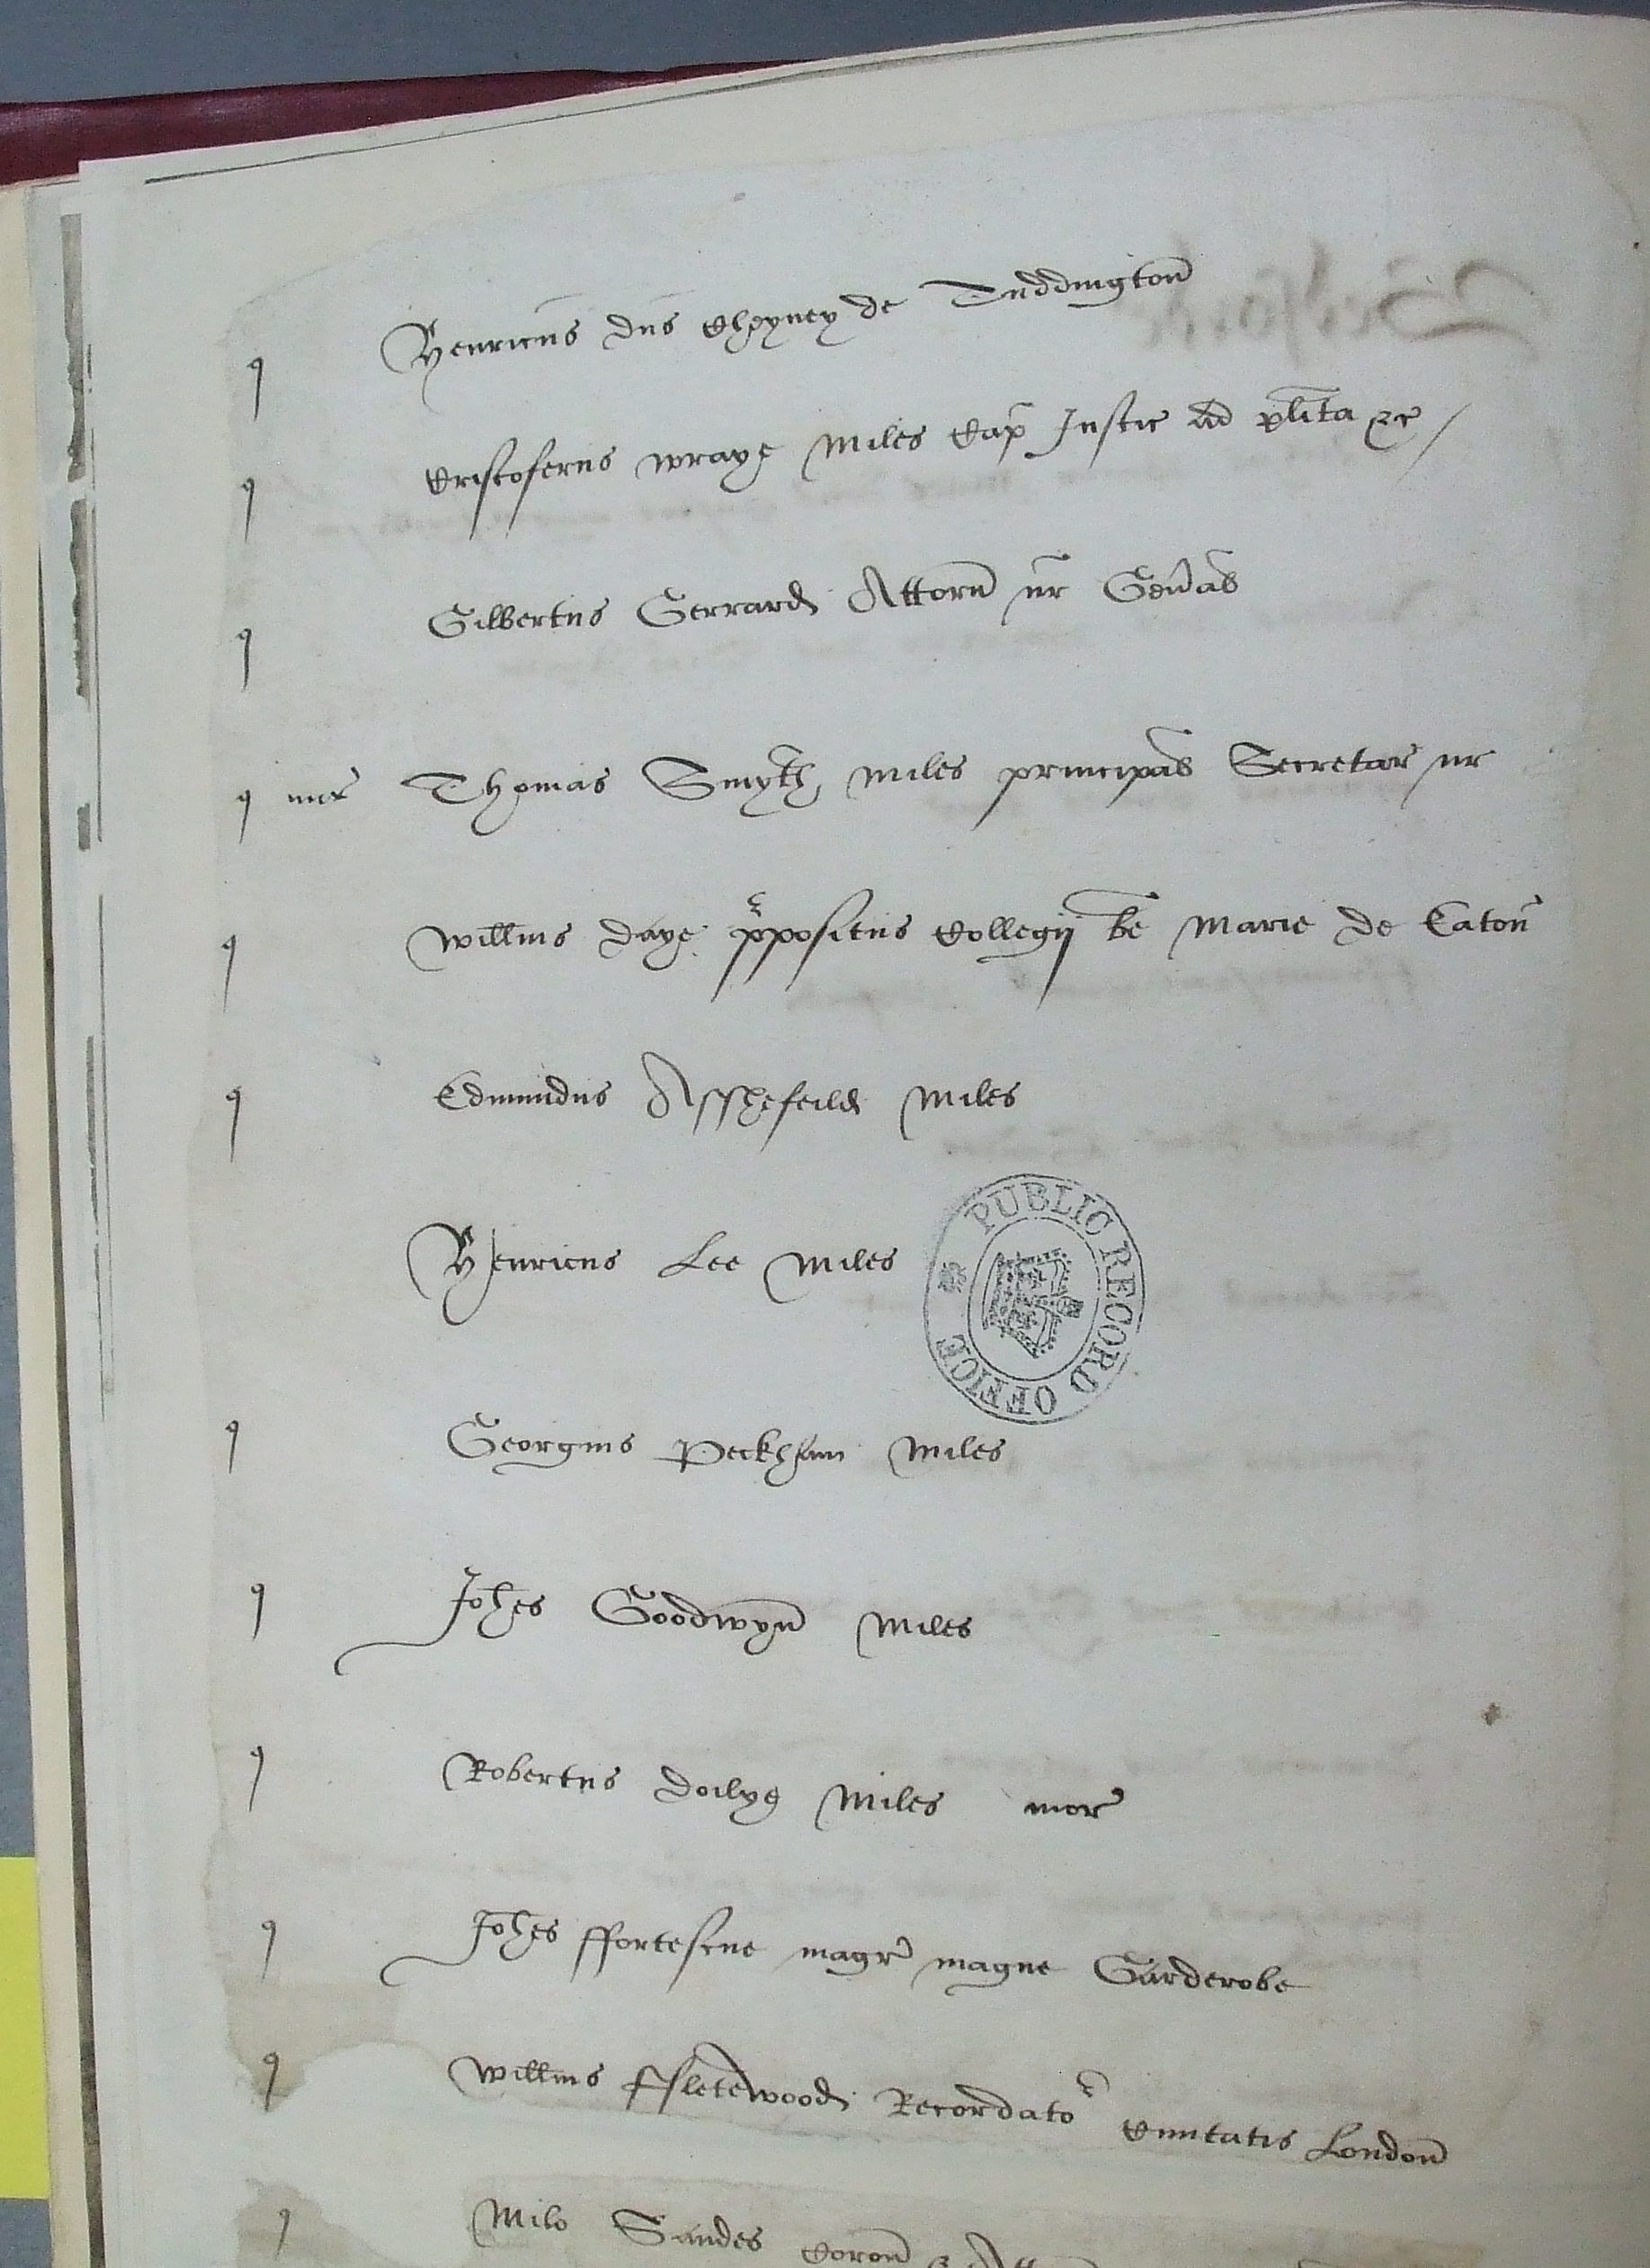 Henricus Dns Cheyney de Tuddington
q Cristoferus Wraye Miles Cap Justic ad plita &c /
q Gilbertus Gerrard Attorn nr Gen'al
q Thomas Smyth Miles principal Secretar nr
q Willms Daye p'positus Collegij be Marie de Eaton
q Edmundus Asshefeild Miles
Henricus Lee Miles
PUBLIC RECORD OFFICE
q Georgius Peckham Miles
q Johes Goodwyn Miles
q Robertus Doilye Miles mor'
q Johes ffortescue magr magne Garderobe
q Willms ffletewood Recordato' Civitatis London
q Milo Sandes Coron